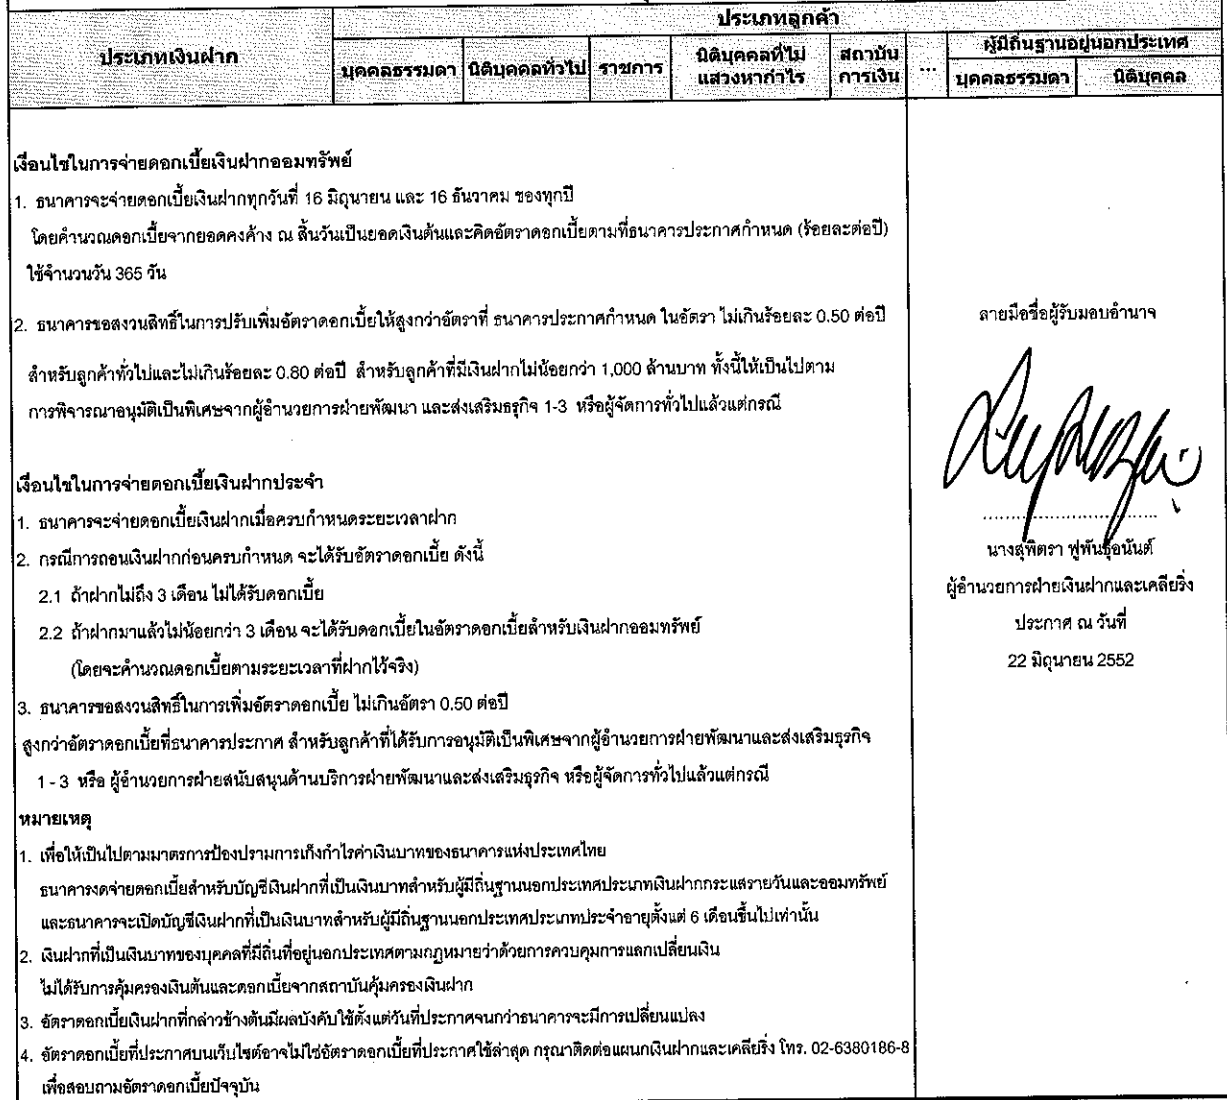 ประเภทเงินฝาก
ประเภทลูกค้า
บุคคลธรรมดา
นิติบุคคลทั่วไป
ราชการ
นิติบุคคลที่ไม่
แสวงหากำไร
สถาบัน
การเงิน
...
ผู้มีถิ่นฐานอยู่นอกประเทศ
บุคคลธรรมดา
นิติบุคคล
เงื่อนไขในการจ่ายดอกเบี้ยเงินฝากออมทรัพย์
1. ธนาคารจะจ่ายดอกเบี้ยเงินฝากทุกวันที่ 16 มิถุนายน และ 16 ธันวาคม ของทุกปี
โดยคำนวณดอกเบี้ยจากยอดคงค้าง ณ สิ้นวันเป็นยอดเงินต้นและคิดอัตราดอกเบี้ยตามที่ธนาคารประกาศกำหนด (ร้อยละต่อปี)
ใช้จำนวนวัน 365 วัน
2. ธนาคารขอสงวนสิทธิ์ในการปรับเพิ่มอัตราดอกเบี้ยให้สูงกว่าอัตราที่ ธนาคารประกาศกำหนด ในอัตรา ไม่เกินร้อยละ 0.50 ต่อปี
สำหรับลูกค้าทั่วไปและไม่เกินร้อยละ 0.80 ต่อปี สำหรับลูกค้าที่มีเงินฝากไม่น้อยกว่า 1,000 ล้านบาท ทั้งนี้ให้เป็นไปตาม
การพิจารณาอนุมัติเป็นพิเศษจากผู้อำนวยการฝ่ายพัฒนา และส่งเสริมธุรกิจ 1-3 หรือผู้จัดการทั่วไปแล้วแต่กรณี
เงื่อนไขในการจ่ายดอกเบี้ยเงินฝากประจำ
1. ธนาคารจะจ่ายดอกเบี้ยเงินฝากเมื่อครบกำหนดระยะเวลาฝาก
2. กรณีการถอนเงินฝากก่อนครบกำหนด จะได้รับอัตราดอกเบี้ย ดังนี้
2.1 ถ้าฝากไม่ถึง 3 เดือน ไม่ได้รับดอกเบี้ย
2.2 ถ้าฝากมาแล้วไม่น้อยกว่า 3 เดือน จะได้รับดอกเบี้ยในอัตราดอกเบี้ยสำหรับเงินฝากออมทรัพย์
(โดยจะคำนวณดอกเบี้ยตามระยะเวลาที่ฝากไว้จริง)
3. ธนาคารขอสงวนสิทธิ์ในการเพิ่มอัตราดอกเบี้ย ไม่เกินอัตรา 0.50 ต่อปี
สูงกว่าอัตราดอกเบี้ยที่ธนาคารประกาศ สำหรับลูกค้าที่ได้รับการอนุมัติเป็นพิเศษจากผู้อำนวยการฝ่ายพัฒนาและส่งเสริมธุรกิจ
1 - 3 หรือ ผู้อำนวยการฝ่ายสนับสนุนด้านบริการฝ่ายพัฒนาและส่งเสริมธุรกิจ หรือผู้จัดการทั่วไปแล้วแต่กรณี
หมายเหตุ
1. เพื่อให้เป็นไปตามมาตรการป้องปรามการเก็งกำไรค่าเงินบาทของธนาคารแห่งประเทศไทย
ธนาคารงดจ่ายดอกเบี้ยสำหรับบัญชีเงินฝากที่เป็นเงินบาทสำหรับผู้มีถิ่นฐานนอกประเทศประเภทเงินฝากกระแสรายวันและออมทรัพย์
และธนาคารจะเปิดบัญชีเงินฝากที่เป็นเงินบาทสำหรับผู้มีถิ่นฐานนอกประเทศประเภทประจำอายุตั้งแต่ 6 เดือนขึ้นไปเท่านั้น
2. เงินฝากที่เป็นเงินบาทของบุคคลที่มีถิ่นที่อยู่นอกประเทศตามกฎหมายว่าด้วยการควบคุมการแลกเปลี่ยนเงิน
ไม่ได้รับการคุ้มครองเงินต้นและดอกเบี้ยจากสถาบันคุ้มครองเงินฝาก
3. อัตราดอกเบี้ยเงินฝากที่กล่าวข้างต้นมีผลบังคับใช้ตั้งแต่วันที่ประกาศจนกว่าธนาคารจะมีการเปลี่ยนแปลง
4. อัตราดอกเบี้ยที่ประกาศบนเว็บไซต์อาจไม่ใช่อัตราดอกเบี้ยที่ประกาศใช้ล่าสุด กรุณาติดต่อแผนกเงินฝากและเคลียริ่ง โทร. 02-6380186-8
เพื่อสอบถามอัตราดอกเบี้ยปัจจุบัน
ลายมือชื่อผู้รับมอบอำนาจ
นางสุพิตรา ฟูพันธุ์อนันต์
ผู้อำนวยการฝ่ายเงินฝากและเคลียริ่ง
ประกาศ ณ วันที่
22 มิถุนายน 2552